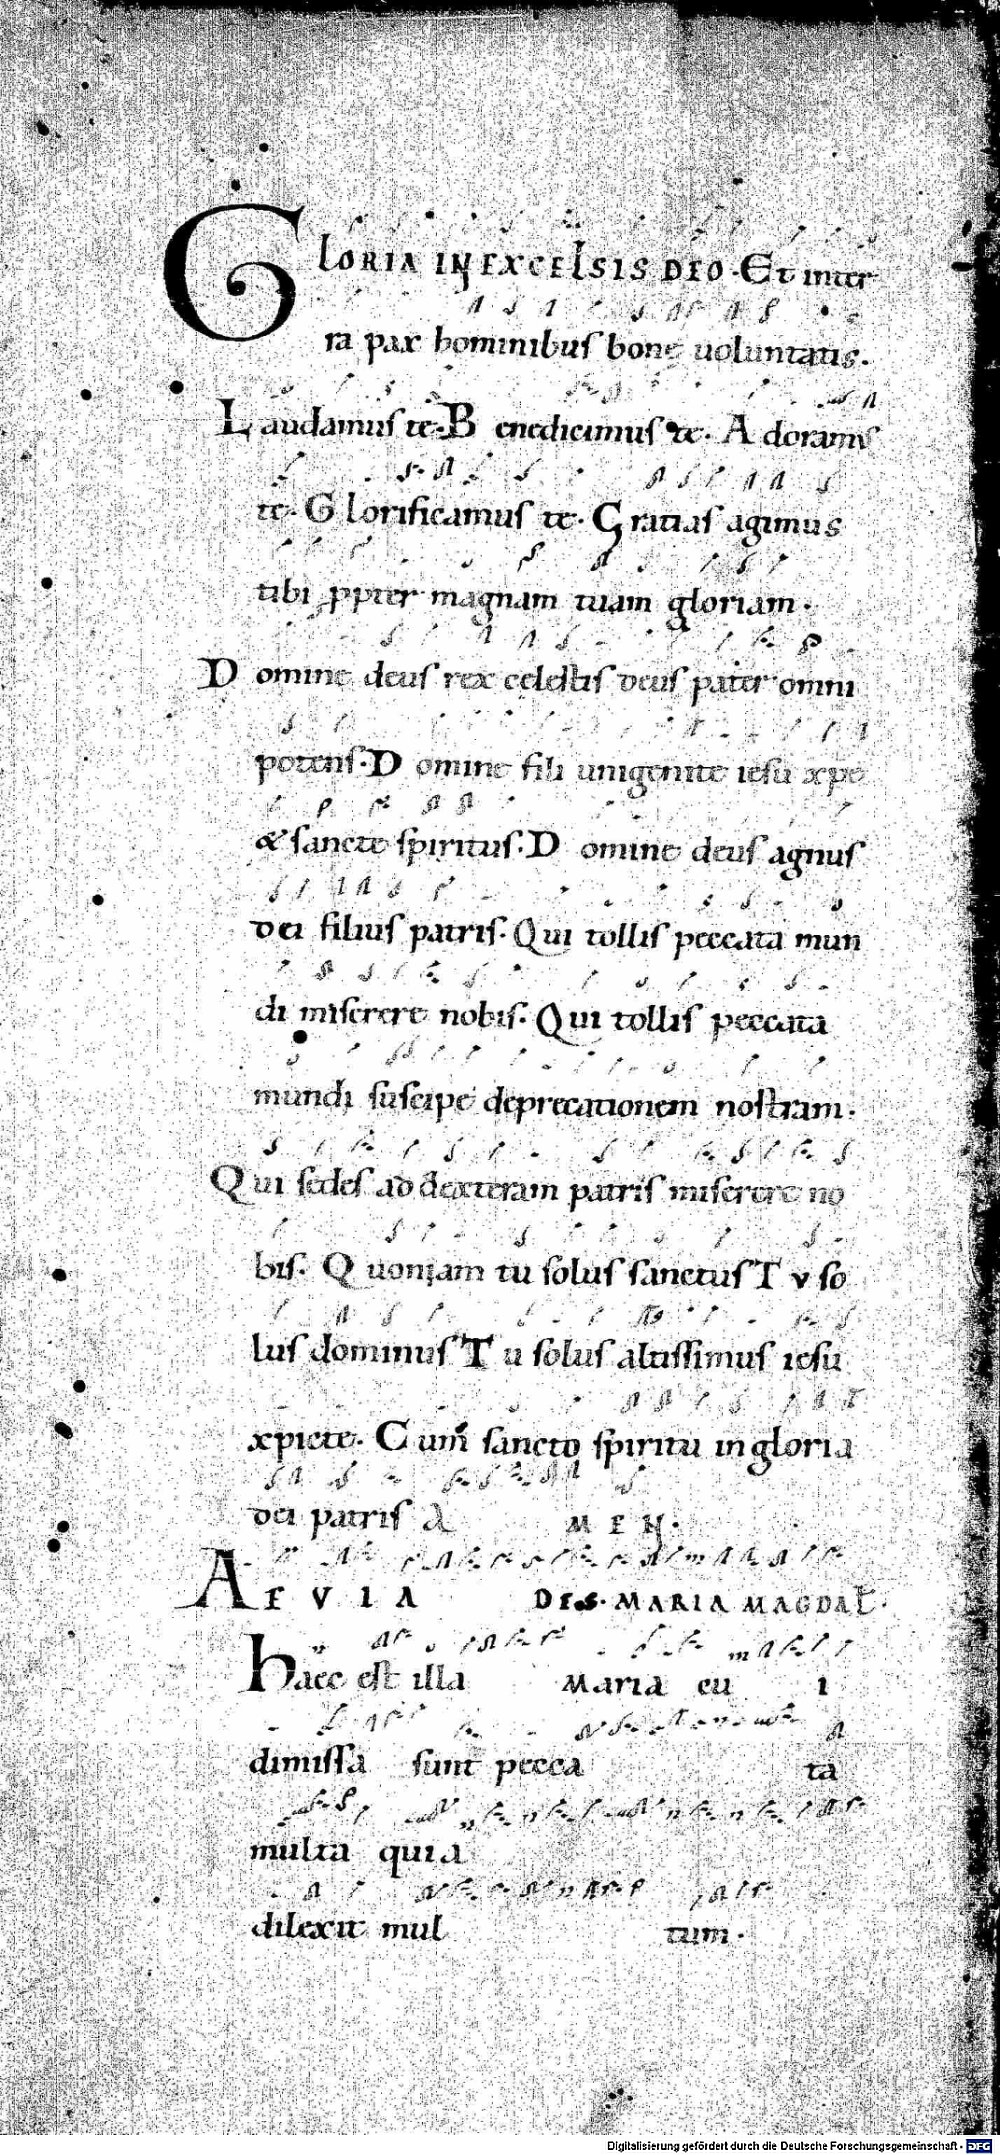 GLORIA IN EXCELSIS DEO. Et in ter
ra pax hominibus bone uoluntatis.
Laudamus te. Benedicimus te. Adoramus
te. Glorificamus te. Gratias agimus
tibi ppter magnam tuam gloriam.
Domine deus rex celestis deus pater omni
potens. Domine fili unigenite iesu xpe
& sancte spiritus. Domine deus agnus
dei filius patris. Qui tollis peccata mun
di miserere nobis. Qui tollis peccata
mundi suscipe deprecationem nostram.
Qui sedes ad dexteram patris miserere no
bis. Quoniam tu solus sanctus Tu so
lus dominus Tu solus altissimus iesu
xpicte. Cum sancto spiritu in gloria
dei patris A MEN.
AEVIA DE S. MARIA MAGDAL.
Haec est illa Maria cu i
dimissa sunt pecca ta
multa quia
dilexit mul tum.
Digitalisierung gefördert durch die Deutsche Forschungsgemeinschaft - DFG